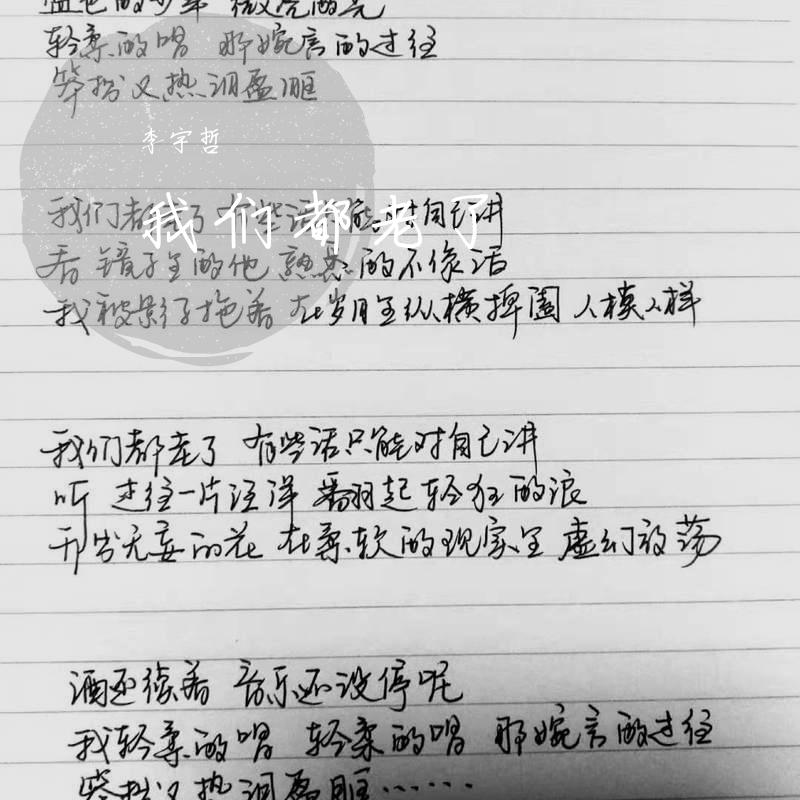 轻柔的唱 那婉言的过往
笑扮又热泪盈眶
李宇哲
我们都老了
我们都老了 有些话只能对自己讲
看 镜子里的他 熟悉的不像话
我被影子拖着 在岁月里纵横捭阖 人模人样
我们都老了 有些话只能对自己讲
听 过往一片汪洋 翻起轻狂的浪
开出无妄的花 在柔软的现实里 虚幻放荡
酒还续着 音乐还没停呢
我轻柔的唱 轻柔的唱 那婉言的过往
又热泪盈眶......